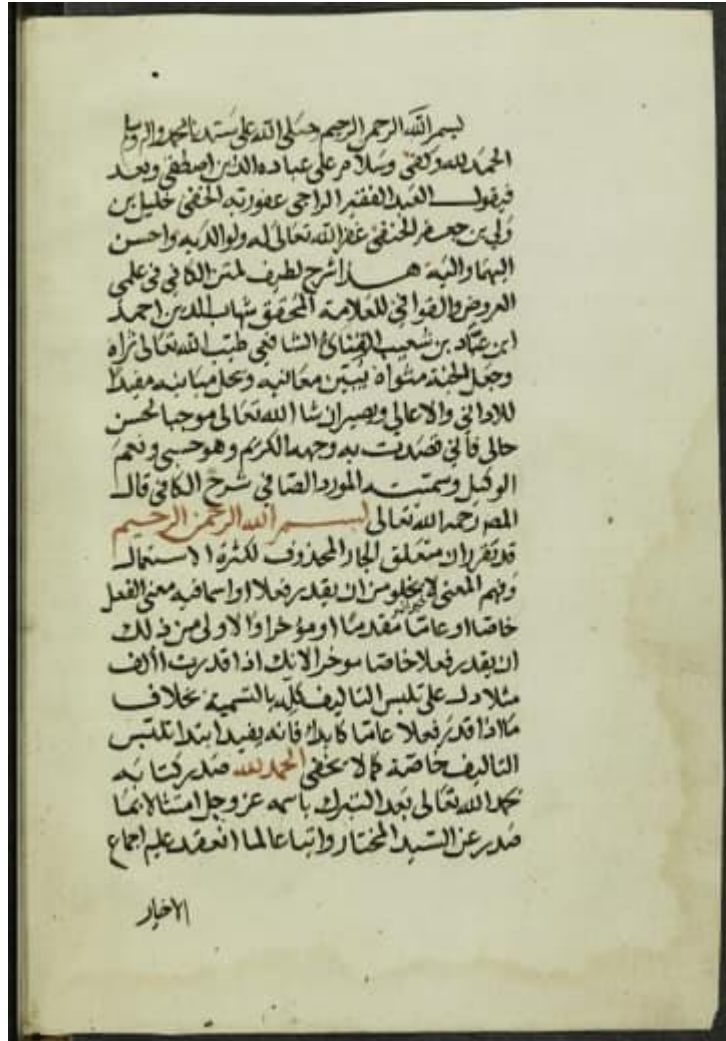 بسم الله الرحمن الرحيم صلى الله على سيدنا محمد واله وسلم
الحمد لله وكفى وسلام على عباده الذين اصطفى وبعد
فيقول العبد الفقير الراجي عفو ربه الخفي خليل بن
ولي بن جعفر الحنفي غفر الله تعالى له ولوالديه واحسن
اليهما واليه هذا شرح لطيف لمتن الكافي في علمي
العروض والقوافي للعلامة المحقق شهاب الدين احمد
ابن عباد بن شعيب القنائي الشافعي طيب الله تعالى ثراه
وجعل الجنة مثواه يبين معانيه ويحل مبانيه مفيدا
للاداني والاعالي ويصير ان شا الله تعالى موجبا لحسن
حالي فاني قصدت به وجهه الكريم وهو حسبي ونعم
الوكيل وسميته المورد الصافي في شرح الكافي قال
المص رحمه الله تعالى بسم الله الرحمن الرحيم
قد تقرر ان متعلق الجار المحذوف لكثرة الاستعمال
وفهم المعنى لا يخلو من ان يقدر فعلا او اسما فيه معنى الفعل
خاصا او عاما مقدما او مؤخرا والاولى من ذلك
ان يقدر فعلا خاصا موخرا لانك اذا قدرت االف
مثلا دل على تلبس التاليف كله بالتسمية بخلاف
ما اذا قدر فعلا عاما كابدا فانه يفيد ابتدا تلبس
التاليف خاصة كما لا يخفى الحمد لله صدر كتابه
بحمد الله تعالى بعد التبرك باسمه عز وجل امتثالا بما
صدر عن السيد المختار واتباعا لما انعقد عليه اجماع
الاخيار